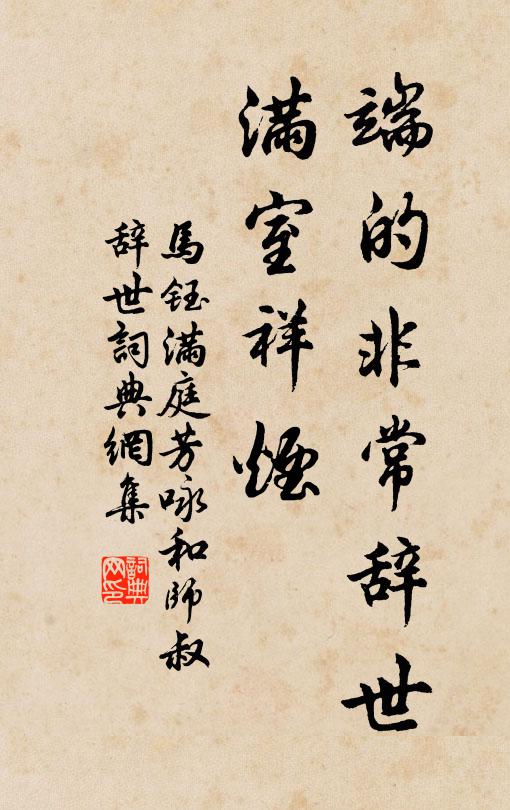 端的非常辞世
滿室祥煙
馬鈺滿庭芳咏和師叔
辞世詞典網集
詞典网印